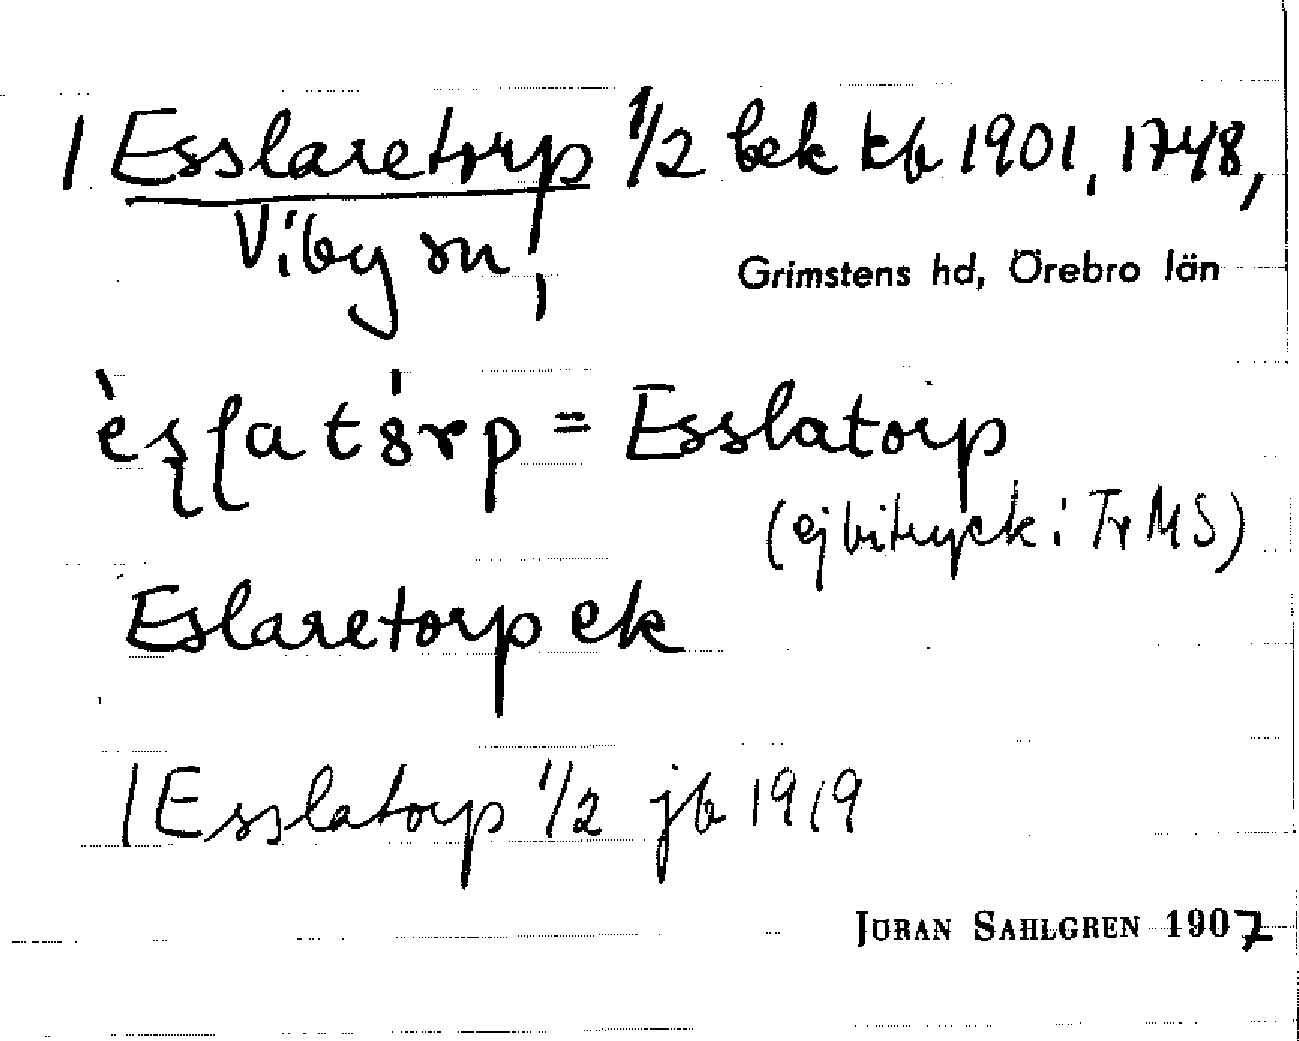 | Esslaretorp 1/2 bek kb 1901, 1748,
Viby sn,
Grimstens hd, Örebro län
= Esslatorp
(ej bitryck i Tr MS)
Eslaretorp ek
| Esslatorp 1/2 jb 1919
JÖRAN SAHLGREN 1907